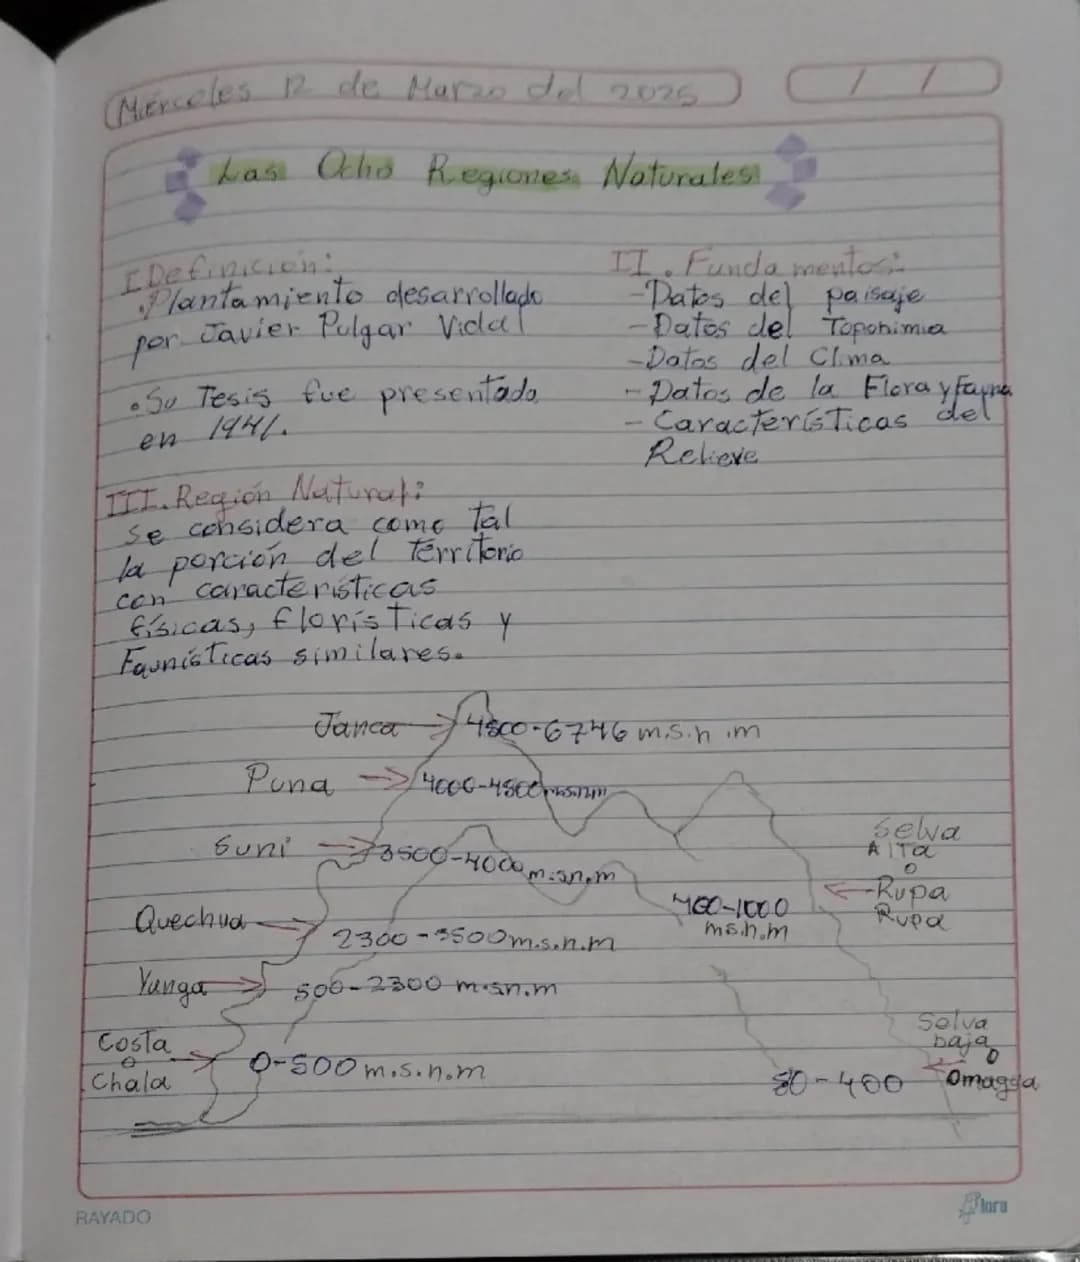 Miercoles 12 de Marzo del 2025
/ /
Las Ocho Regiones Naturales
I Definición:
.Plantamiento desarrollado
por Javier Pulgar Vidal
.Su Tesis fue presentada
en 1941.
II. Fundamentos:
-Datos del paisaje
-Datos del Toponimia
-Datos del Clima
-Datos de la Flora y Fauna
-Características del
Relieve
III. Región Natural:
Se considera como tal
la porción del Territorio
con características
físicas, florísticas y
Faunísticas similares.
Janca
4800-6746 m.s.n.m
Puna
4000-4800 m.s.n.m
Suni
3500-4000 m.s.n.m
Quechua
2300-3500 m.s.n.m
Yunga
500-2300 m.s.n.m
Costa
o
Chala
0-500 m.s.n.m
Selva
Alta
o
Rupa
Rupa
400-1000
m.s.n.m
Selva
baja
o
Omagua
80-400
RAYADO